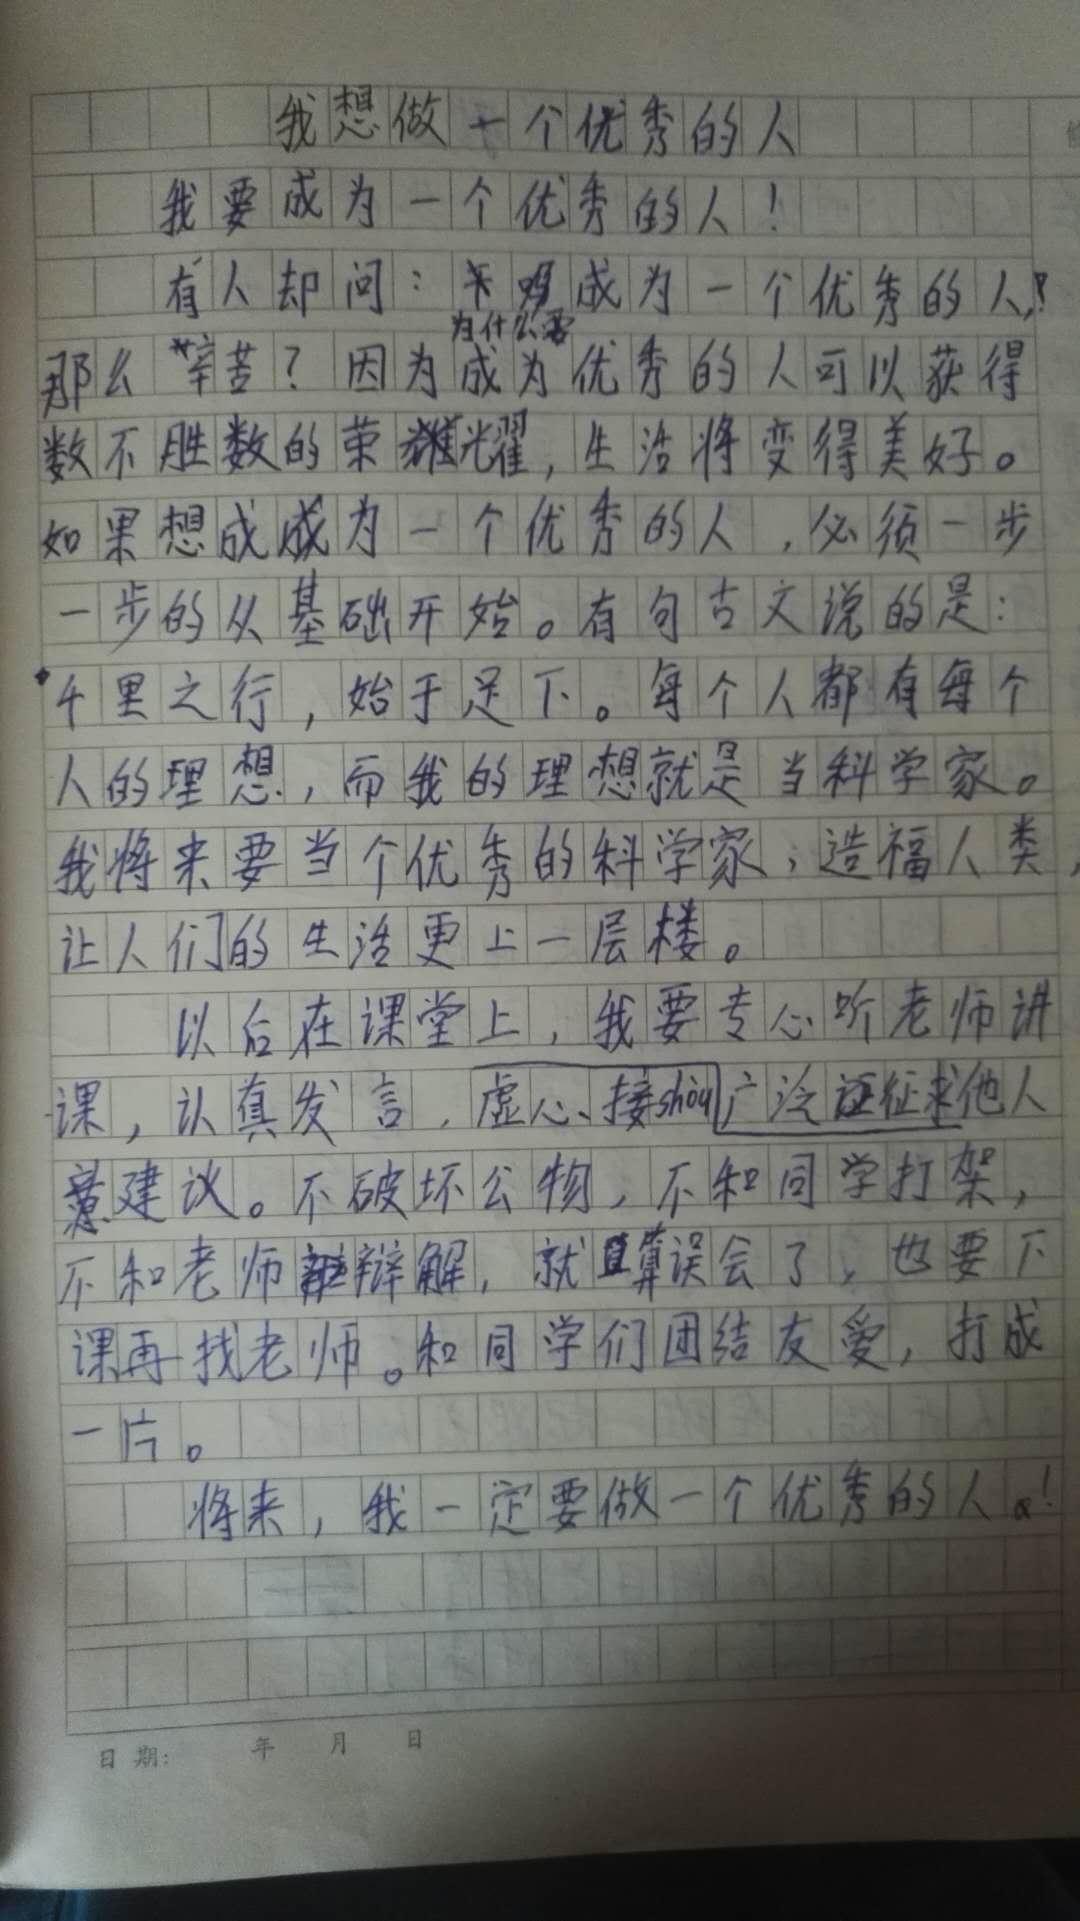 我想做一个优秀的人
我要成为一个优秀的人！
有人却问：为什么要成为一个优秀的人，
那么辛苦？因为成为优秀的人可以获得
数不胜数的荣耀，生活将变得美好。
如果想成成为一个优秀的人，必须一步
一步的从基础开始。有句古文说的是：
千里之行，始于足下。每个人都有每个
人的理想，而我的理想就是当科学家。
我将来要当个优秀的科学家，造福人类，
让人们的生活更上一层楼。
以后在课堂上，我要专心听老师讲
课，认真发言，虚心、接shòu广泛征求他人
意建议。不破坏公物，不和同学打架，
不和老师辩解，就算误会了，也要下
课再找老师。和同学们团结友爱，打成
一片。
将来，我一定要做一个优秀的人。！
日期： 年 月 日